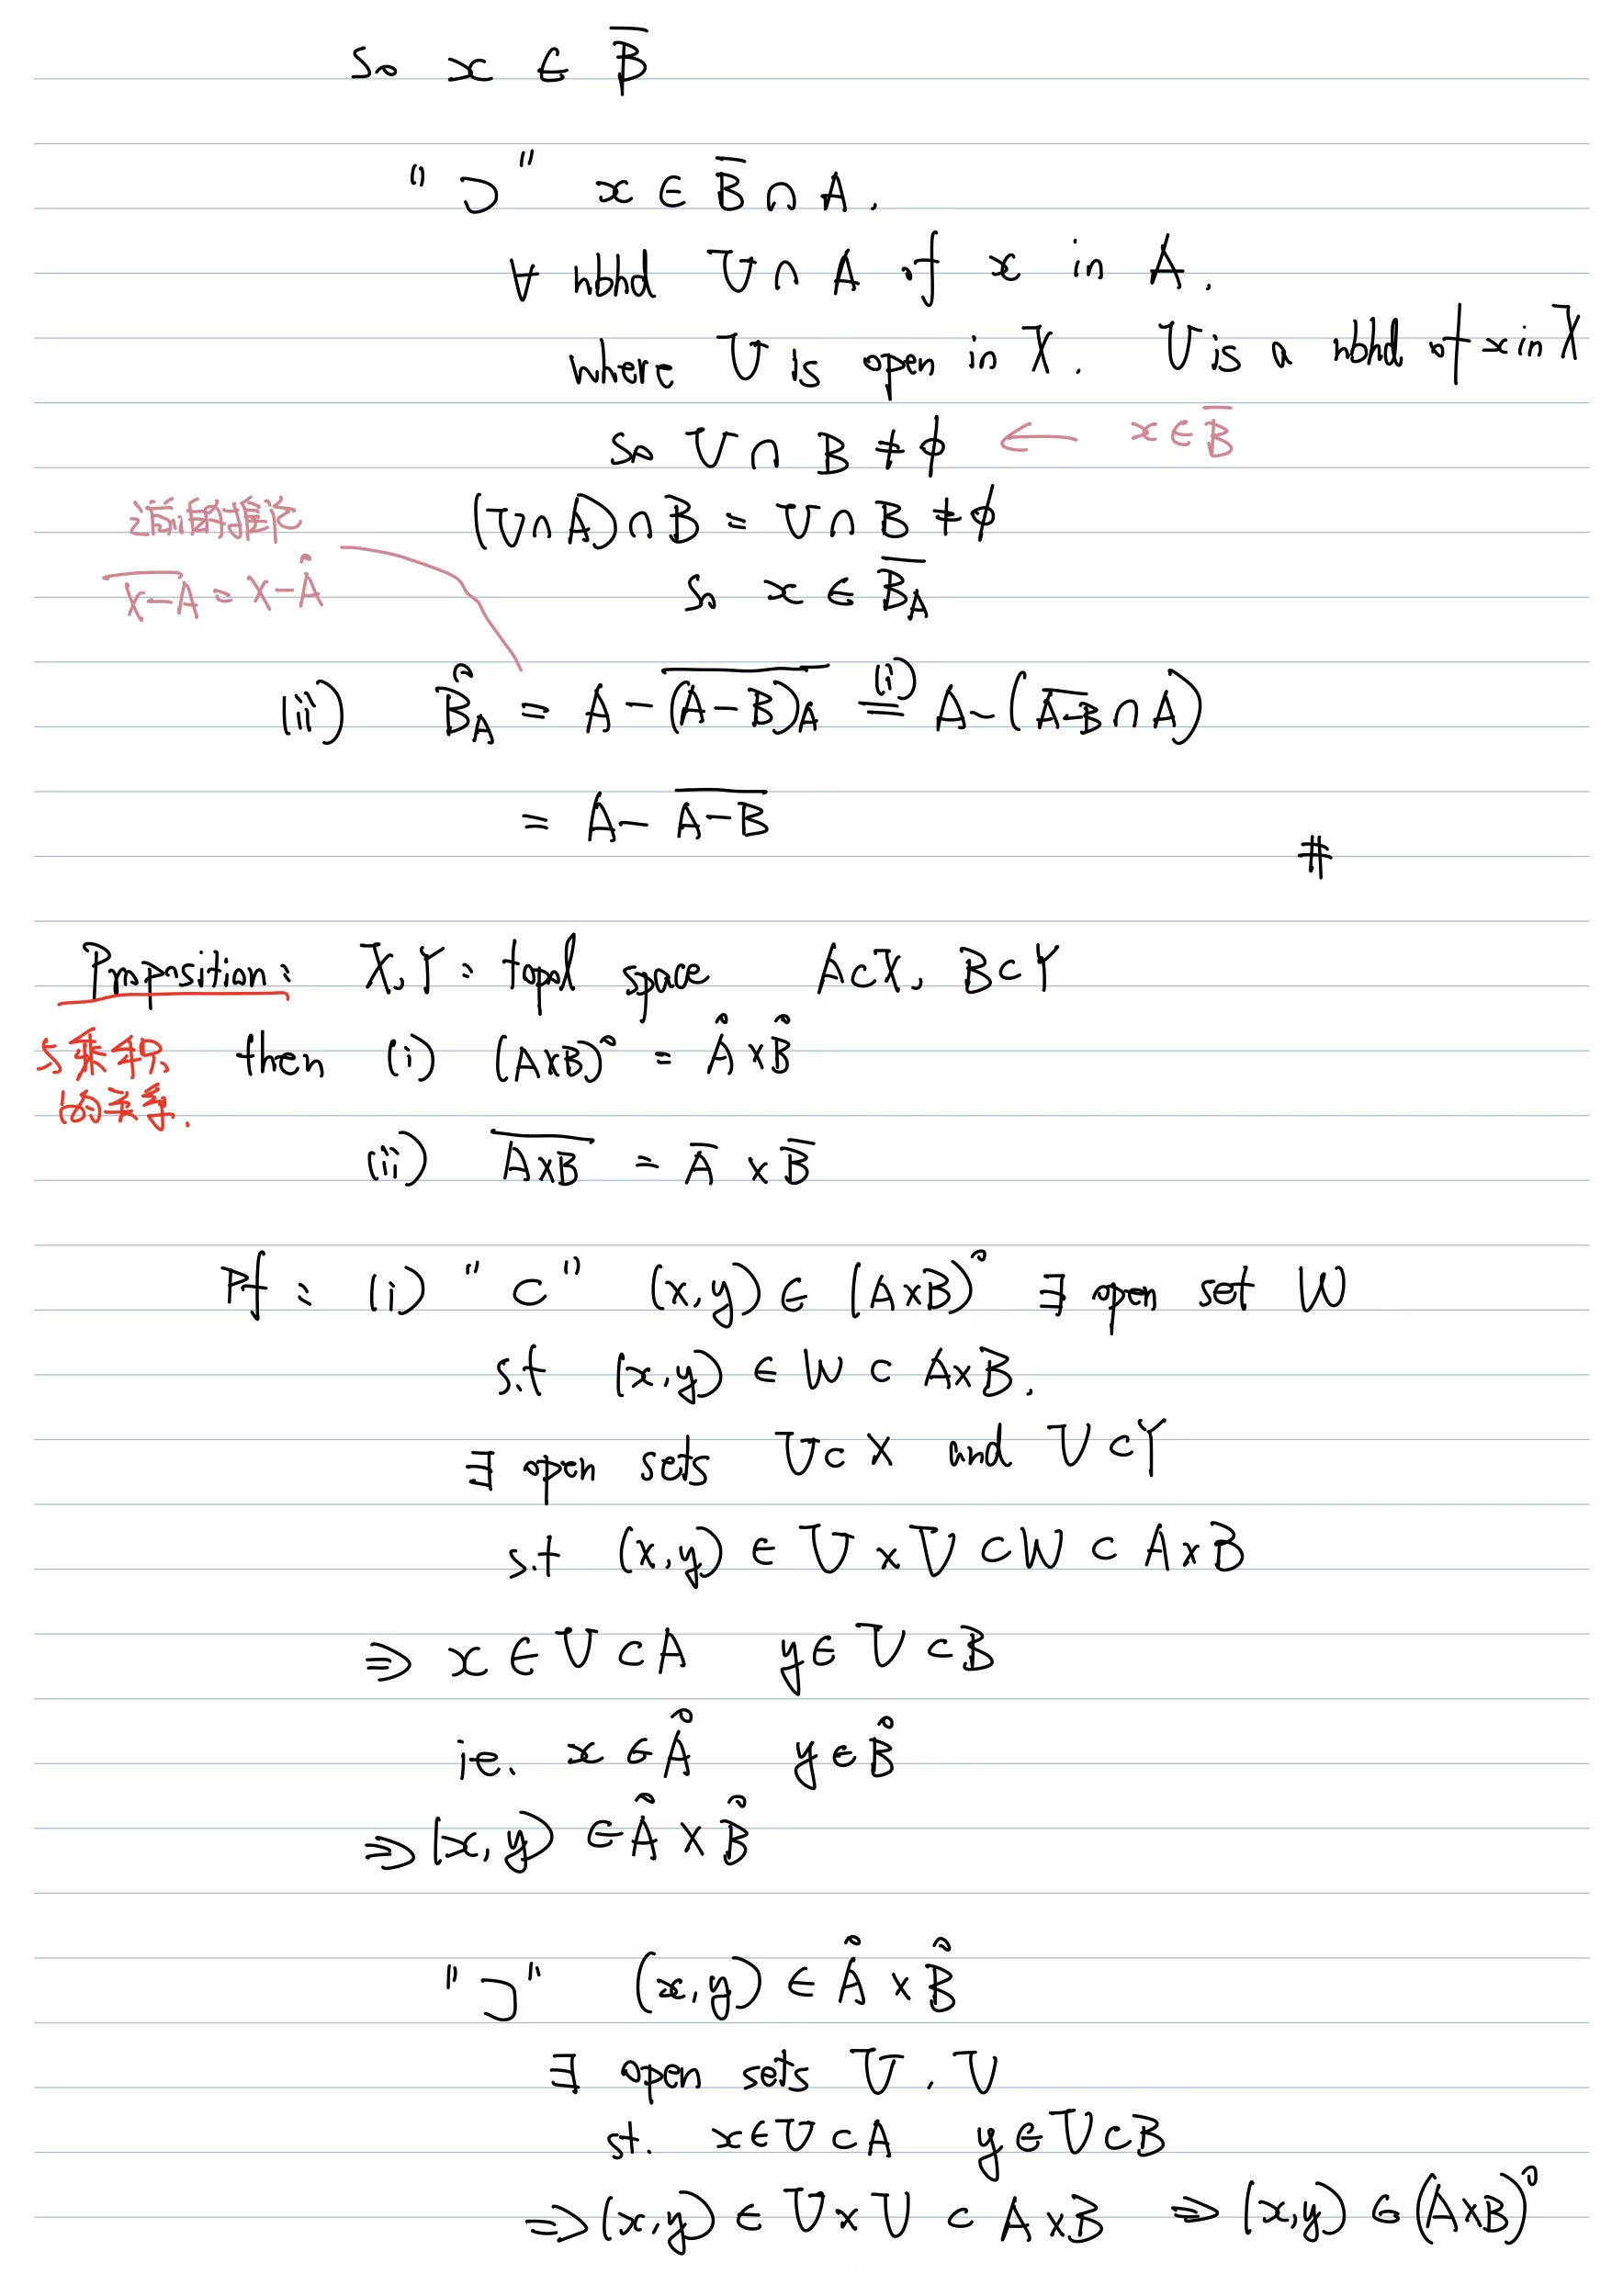 So x ∈ B̅
"⊃" x ∈ B̅ ∩ A.
∀ nbhd U ∩ A of x in A.
where U is open in X. U is a nbhd of x in X
so U ∩ B ≠ ϕ ← x ∈ B̅
(U∩A)∩B = U∩B ≠ ϕ
之前的推论
\overline{X-A} = X-Å
So x ∈ \overline{B}_A
(ii) B̊_A = A - \overline{(A-B)}_A \overset{(i)}{=} A - (\overline{A-B} ∩ A)
= A - \overline{A-B}
#
Proposition: X, Y : topol space A⊂X, B⊂Y
与乘积的关系.
then (i) (A×B)° = Å×B̊
(ii) \overline{A×B} = A̅ × B̅
Pf : (i) "⊂" (x,y) ∈ (A×B)° ∃ open set W
s.t (x,y) ∈ W ⊂ A×B.
∃ open sets U⊂X and V⊂Y
s.t (x,y) ∈ U×V ⊂ W ⊂ A×B
⇒ x ∈ U ⊂ A y ∈ V ⊂ B
ie. x ∈ Å y ∈ B̊
⇒ (x,y) ∈ Å × B̊
"⊃" (x,y) ∈ Å × B̊
∃ open sets U, V
st. x∈U⊂A y∈V⊂B
⇒ (x,y) ∈ U×V ⊂ A×B ⇒ (x,y) ∈ (A×B)°